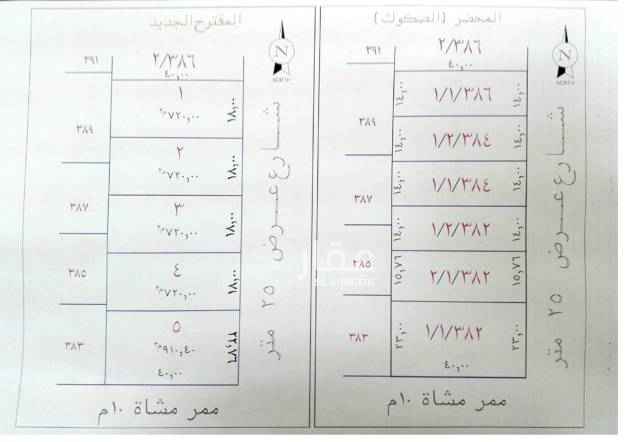 المحضر (الصكوك)
٢/٣٨٦
٤٠,٠٠
٣٩١
N
١٤,٠٠ ١/١/٣٨٦ ١٤,٠٠
٣٨٩
١٤,٠٠ ١/٢/٣٨٤ ١٤,٠٠
١٤,٠٠ ١/١/٣٨٤ ١٤,٠٠
٣٨٧
١٤,٠٠ ١/٢/٣٨٢ ١٤,٠٠
٢٨٥
١٥,٧٦ ٢/١/٣٨٢ ١٥,٧٦
٢٣,٠٠ ١/١/٣٨٢ ٢٣,٠٠
٣٨٣
٤٠,٠٠
شارع عرض ٢٥ متر
ممر مشاة ١٠م
المقترح الجديد
٢/٣٨٦
٤٠,٠٠
٣٩١
N
١
٧٢٠,٠٠م٢
١٨,٠٠
٣٨٩
٢
٧٢٠,٠٠م٢
١٨,٠٠
٣
٧٢٠,٠٠م٢
١٨,٠٠
٣٨٧
٤
٧٢٠,٠٠م٢
١٨,٠٠
٣٨٥
٥
٩١٠,٤٠م٢
٢٢,٧٦
٣٨٣
٤٠,٠٠
شارع عرض ٢٥ متر
ممر مشاة ١٠م
عقار